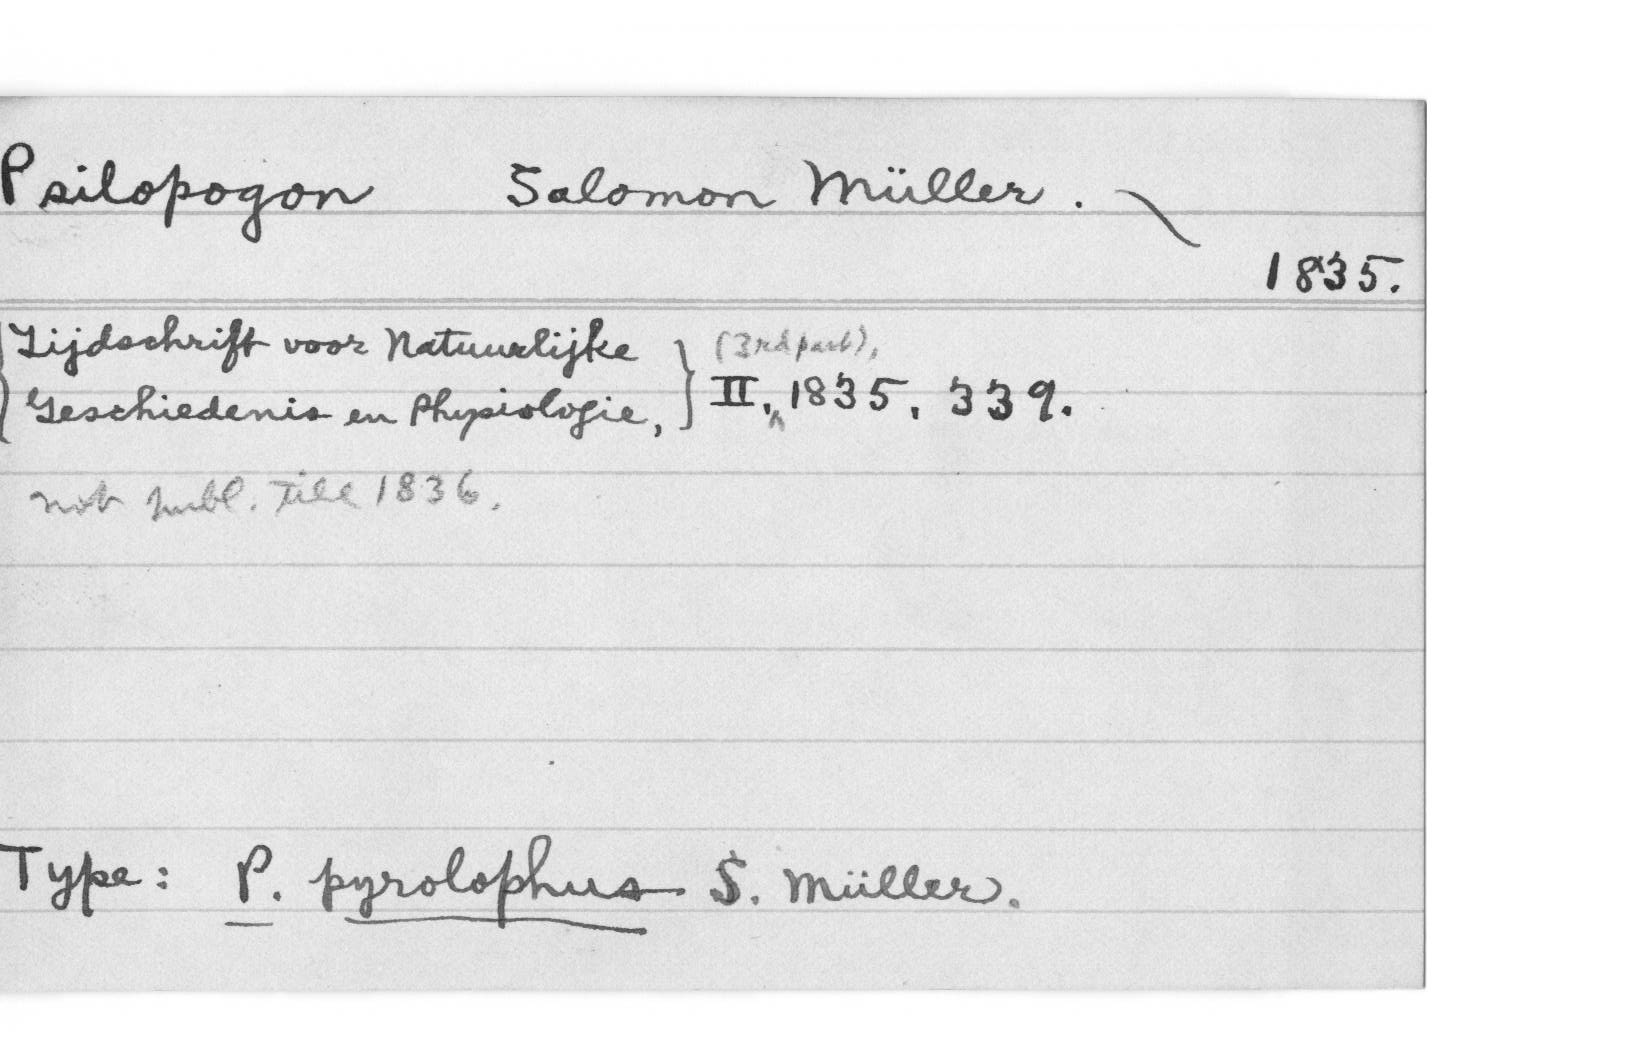 Psilopogon Salomon Müller.
1835.
Tijdschrift voor Natuurlijke
Geschiedenis en Physiologie,
(3rd part),
II, 1835, 339.
not publ. till 1836.
Type: P. pyrolophus S. Müller.